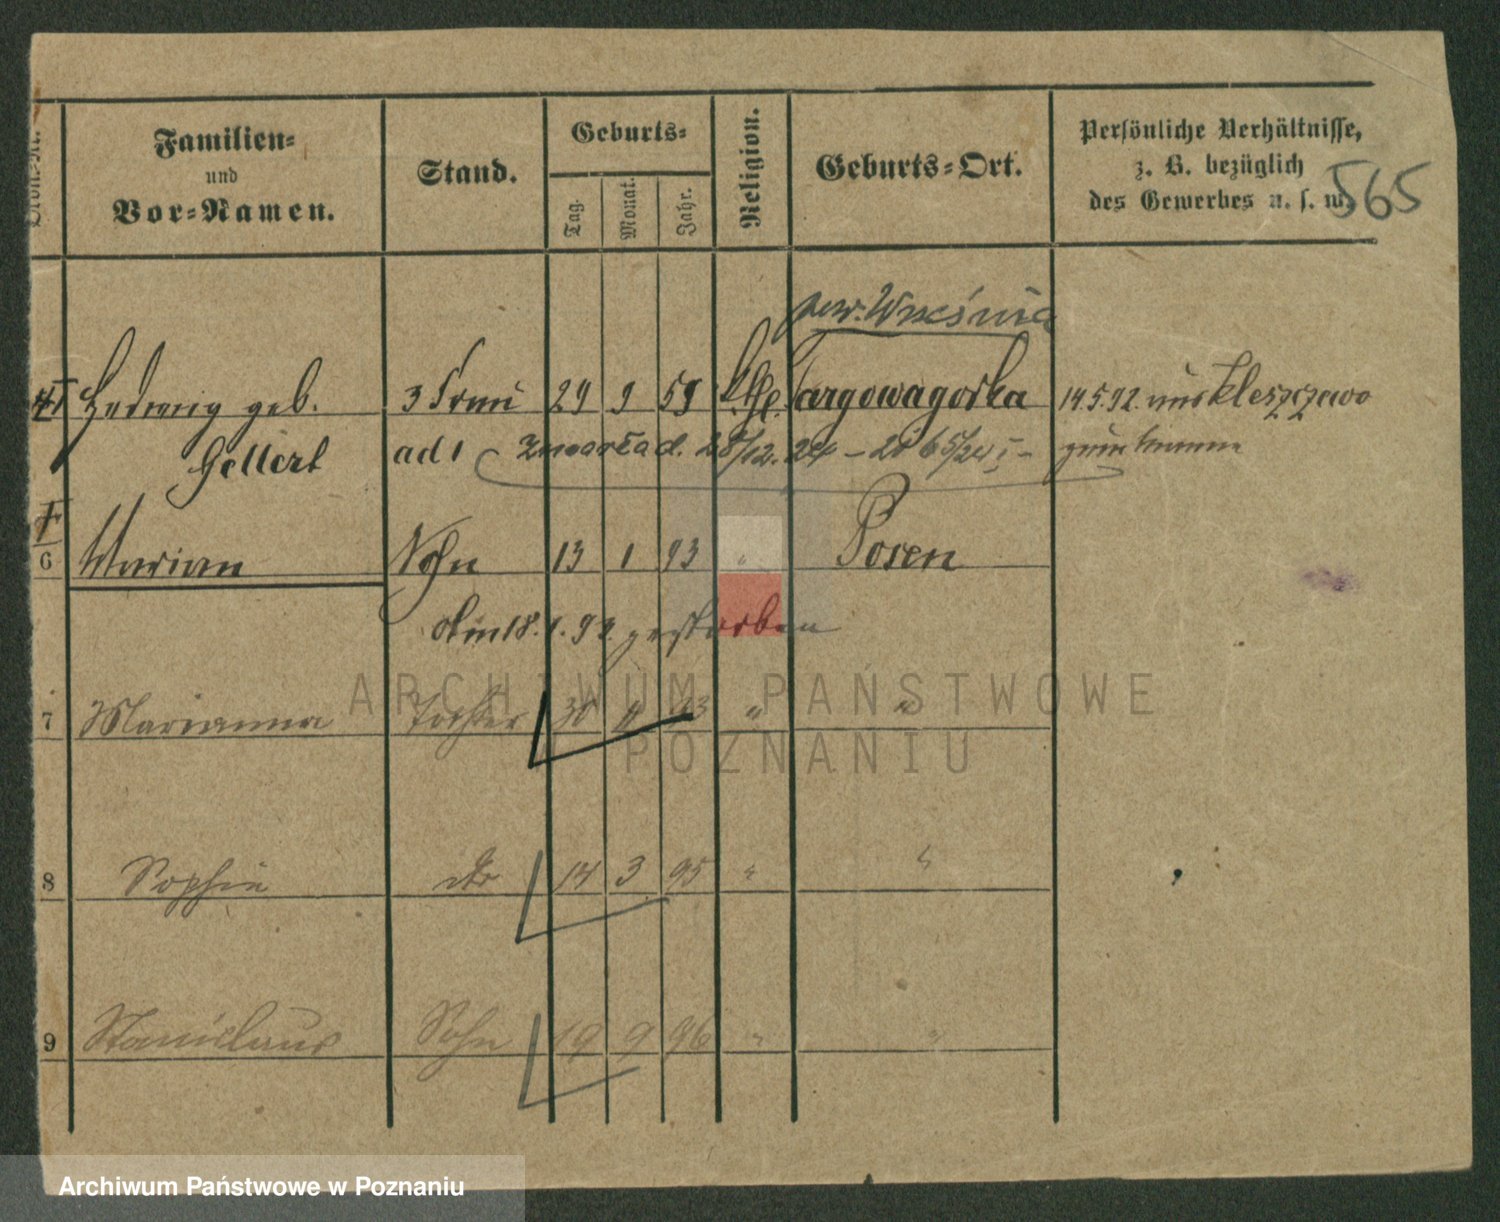 Familien=
und
Vor=Namen.
Stand.
Geburts=
Tag.
Monat.
Jahr.
Religion.
Geburts=Ort.
Persönliche Verhältnisse,
z. B. bezüglich
des Gewerbes u. s. w.
565
pow. Września
Hedwig geb. 3 Frau 29 9 59 Targowagorka 14.5.92. aus Kleszczewo
Gellert ad 1 zmarła d. 28/12. 24
6 Marian Sohn 13 1 93 " Posen
Am 18. 1. 93. gestorben
7 Marianna Tochter 30 11 93 " "
8 Sophie do 14 3 95 " "
9 Stanislaus Sohn 19 9 96 " "
ARCHIWUM PAŃSTWOWE
POZNANIU
Archiwum Państwowe w Poznaniu